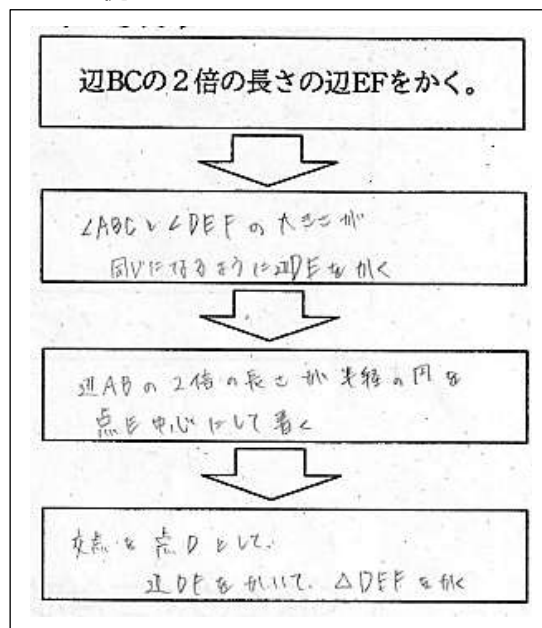 辺BCの2倍の長さの辺EFをかく。
∠ABCと∠DEFの大きさが
同じになるように辺DEをかく
辺ABの2倍の長さが半径の円を
点E中心にして書く
交点を点Dとして、
辺DFをかいて、△DEFをかく